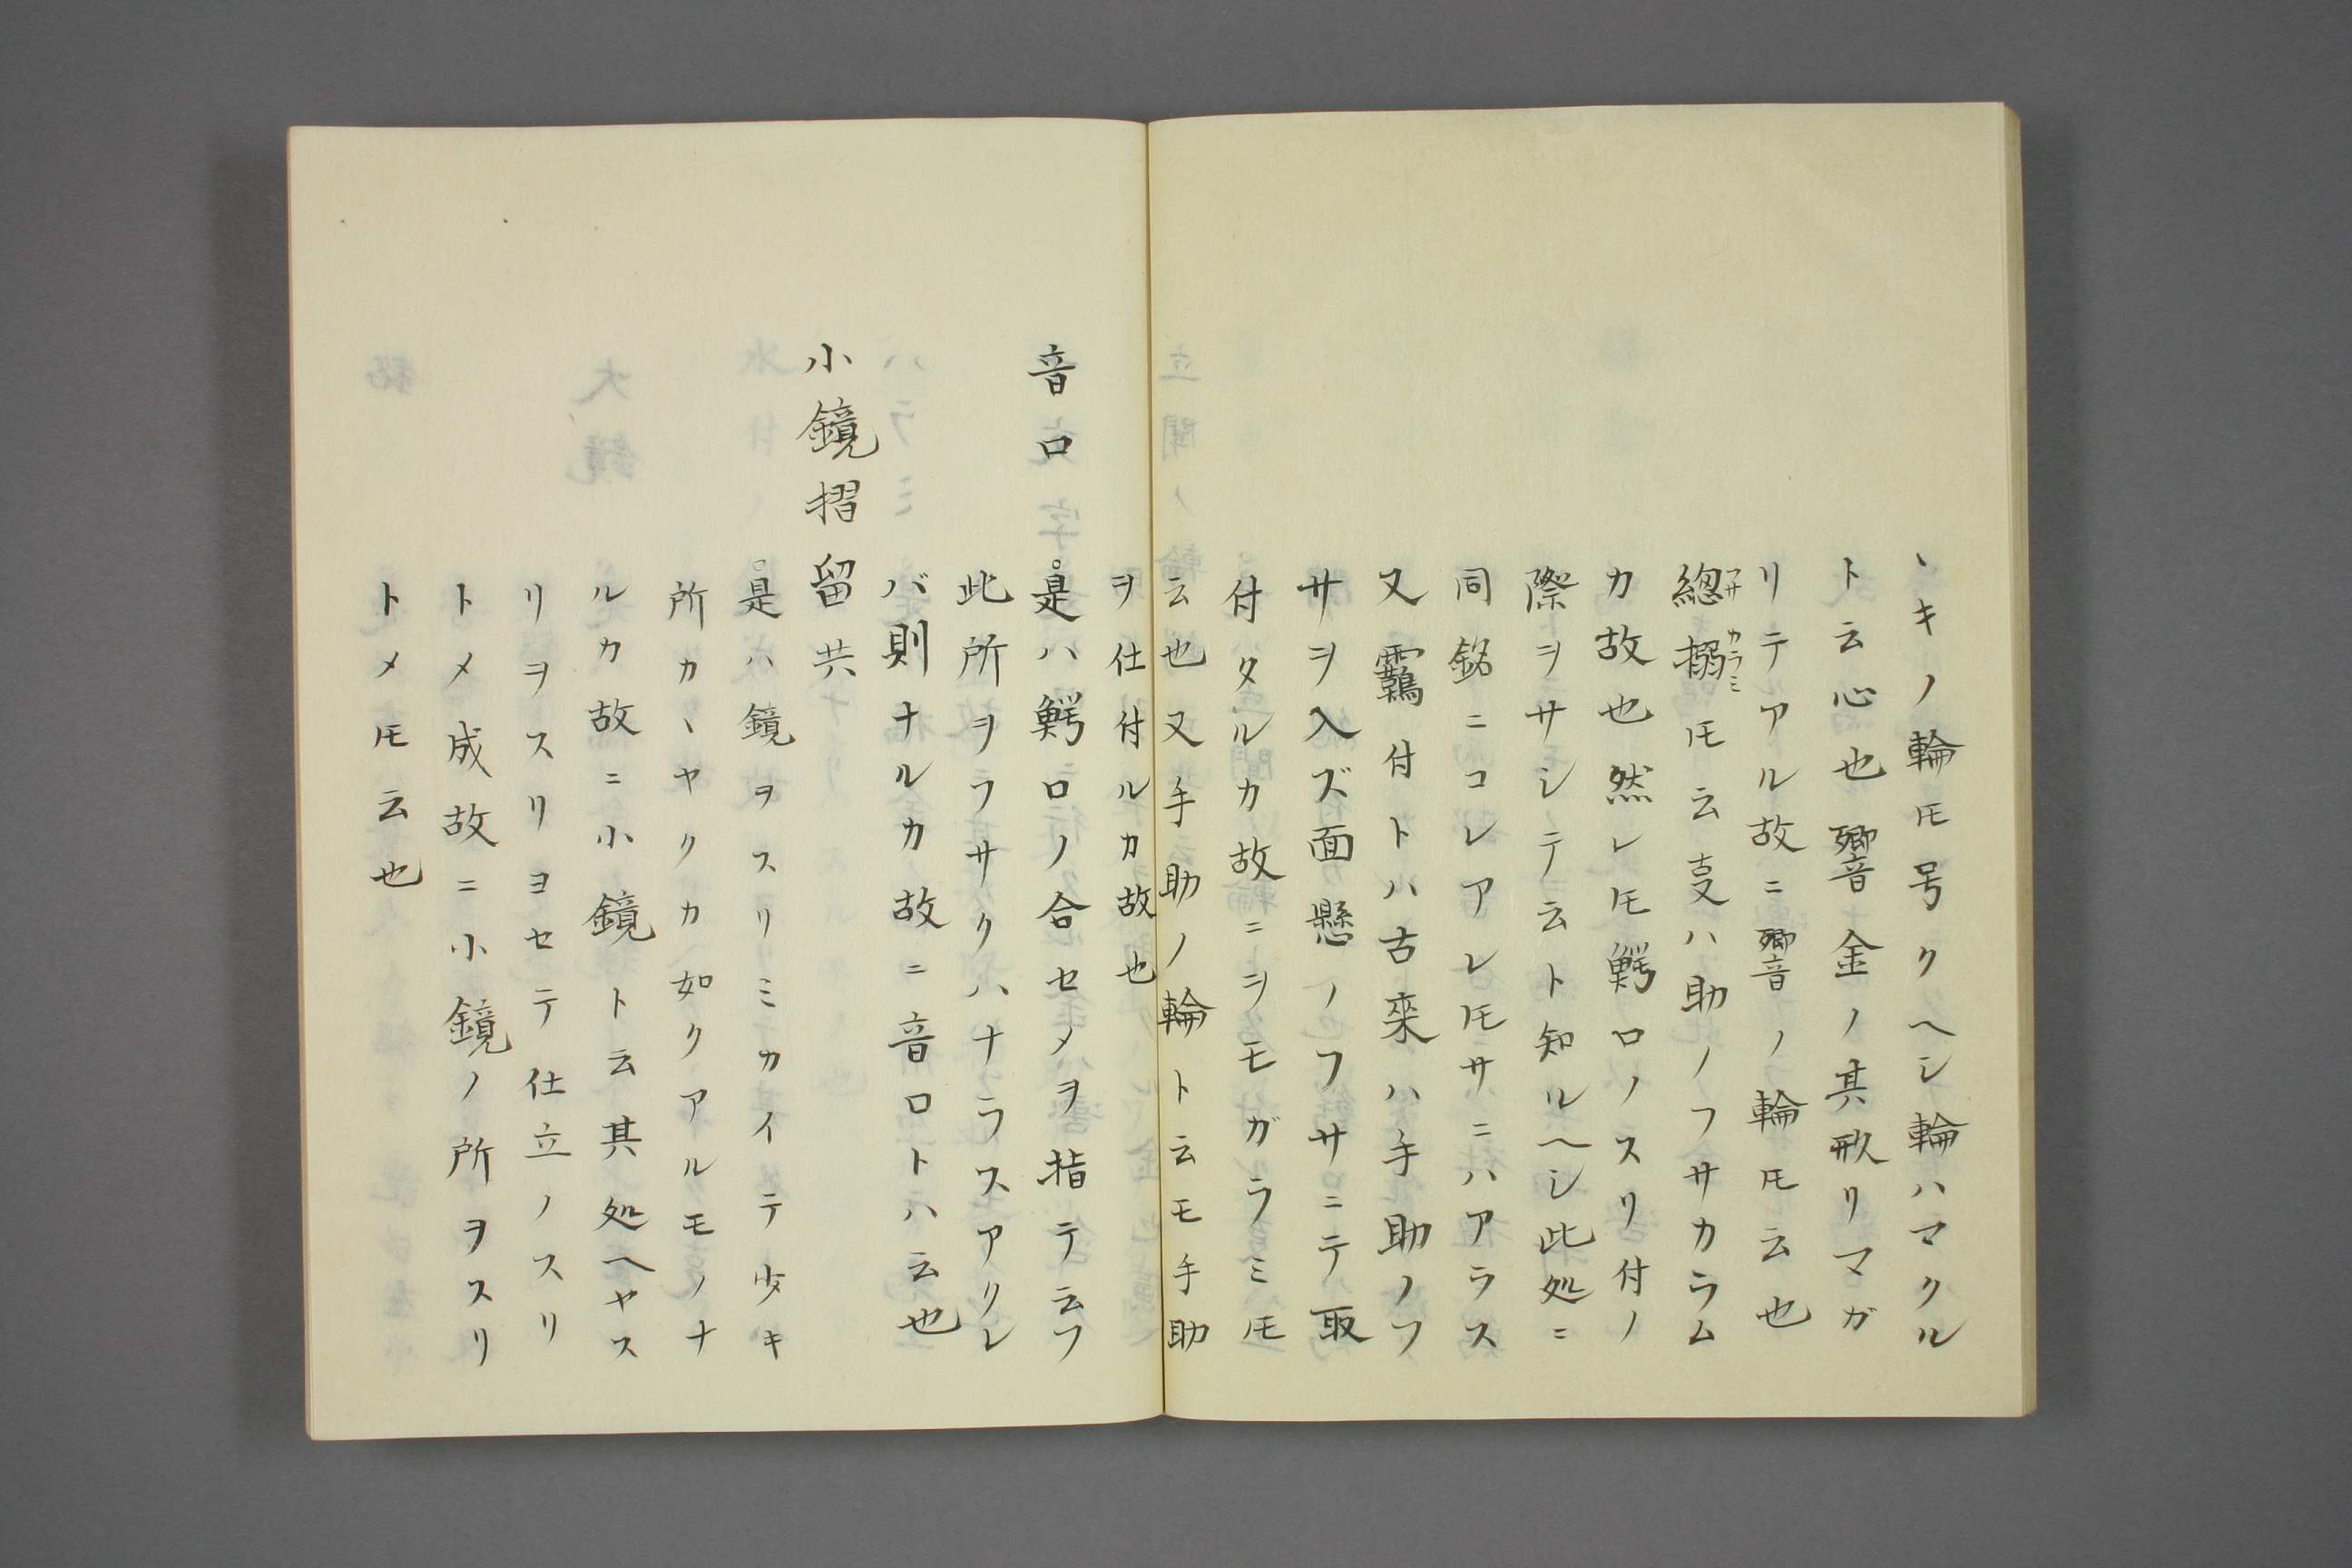 ヽキノ輪𪜈号クヘシ輪ハマクル
ト云心也響金ノ其形リマガ
リテアル故ニ響ノ輪𪜈云也
總搦𪜈云㕝ハ助ノフサカラム
フサ カラミ
カ故也然レ𪜈鰐口ノスリ付ノ
際ヲサシテ云ト知ルヘシ此処ニ
同銘ニコレアレ𪜈サニハアラス
又靏付トハ古来ハ手助ノフ
サヲ入ズ面懸ノフサニテ取
付タルカ故ニヲモガラミ𪜈
云也又手助ノ輪ト云モ手助
ヲ仕付ルカ故也
音口
是ハ鰐口ノ合セメヲ指テ云フ
此所ヲフサクハナラスアクレ
バ則ナルカ故ニ音口トハ云也
小鏡摺留共
是ハ鏡ヲスリミカイテ少キ
所カヽヤクカ如クアルモノナ
ルカ故ニ小鏡ト云其処ヘヤス
リヲスリヨセテ仕立ノスリ
トメ成故ニ小鏡ノ所ヲスリ
トメ𪜈云也